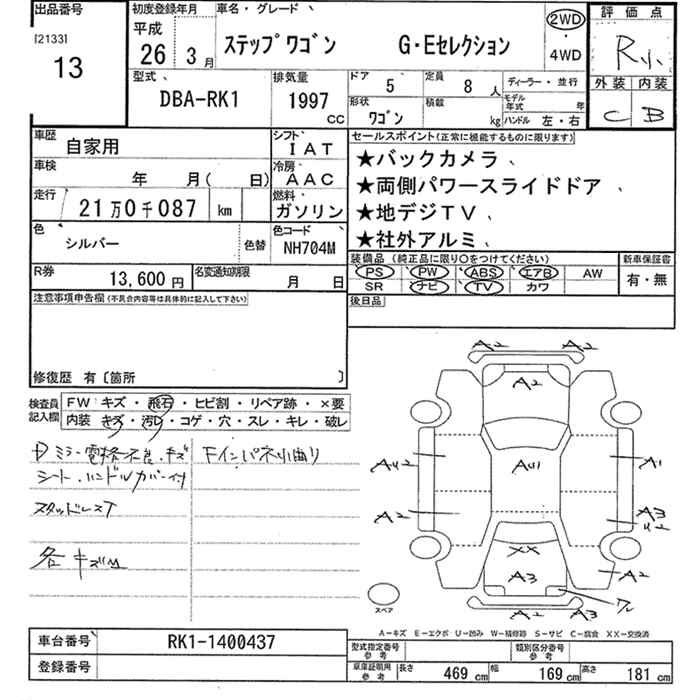 出品番号
[2133]
13
初度登録年月
平成
26年 3月
車名・グレード
ステップワゴン G・Eセレクション
2WD
・
4WD
評価点
R小
外装 内装
C B
型式
DBA-RK1
排気量
1997
CC
ドア
5
定員
8人
形状
ワゴン
積載
kg
ディーラー・並行
モデル年式 年
ハンドル 左・右
車歴
自家用
シフト
IAT
車検
年 月( 日)
冷房
AAC
走行
21万0千087 km
燃料
ガソリン
色
シルバー
色替
色コード
NH704M
R券
13,600円
名変通知期限
月 日
セールスポイント(正常に機能するものに限ります)
★バックカメラ
★両側パワースライドドア
★地デジTV
★社外アルミ
装備品(純正品に限り○をつけてください)
PS PW ABS エアB AW
SR ナビ TV カワ
新車保証書
有・無
後日品
注意事項申告欄(不具合内容等は具体的に記入して下さい)
修復歴 有〔箇所 〕
検査員記入欄
FW キズ・飛石・ヒビ割・リペア跡・×要
内装 キズ・汚レ・コゲ・穴・スレ・キレ・破レ
Dミラー電格不良、キズ
Fインパネ小曲り
シート、ハンドルカバー付
スタッドレスT
各キズM
A2 A2
A2
AU2
AU1
A1
A2
A3
U2
XX
A3
A2
A2 A3
スペア
A-キズ E-エクボ U-凹み W-補修跡 S-サビ C-腐食 XX-交換済
車台番号
RK1-1400437
登録番号
型式指定番号
参考
類別区分番号
参考
車庫証明用
参考
長さ 469cm
幅 169cm
高さ 181cm